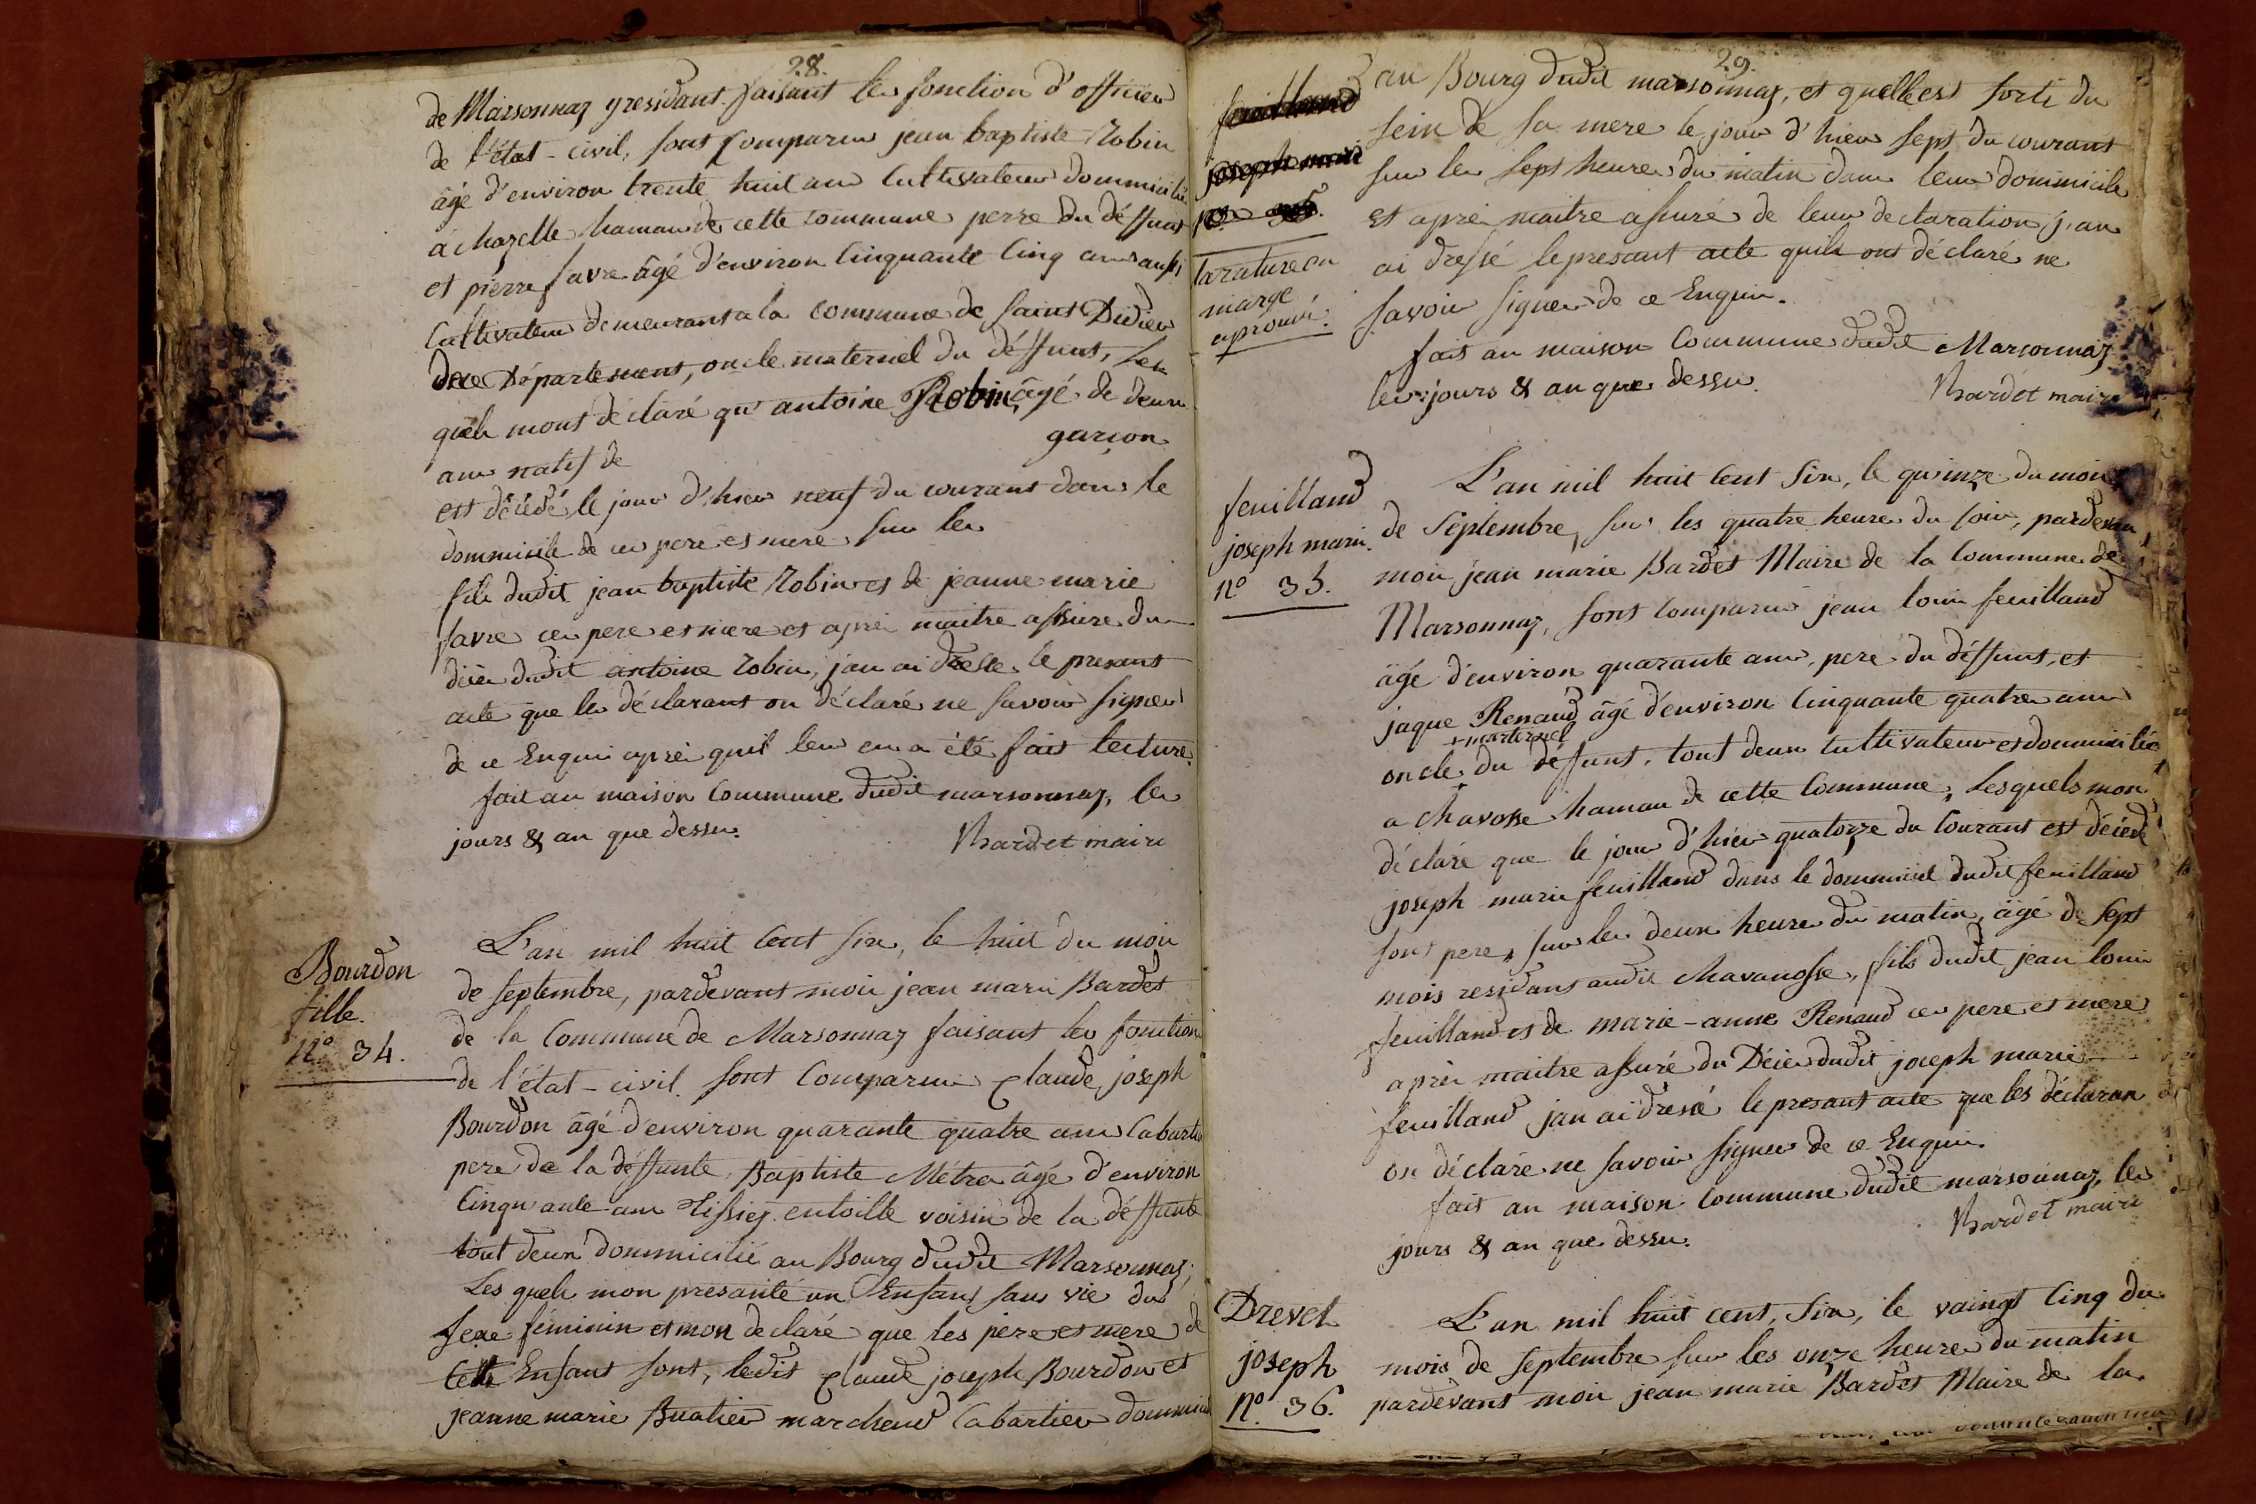 28.
de Marsonnaz y residant faisant les fonction d'officier
de l'état-civil, sont comparus jean baptiste Robin
âgé d'environ trente huit ans Cultivateur dommicilié
à chazelle hamau de cette commune perre du déffunt
et pierre favre âgé d'environ Cinquante Cinq ans aussi
Cultivateur demeurant a la commune de saint Didier
de ce Département, oncle maternel du déffunt, Les
quels mont déclaré qu'antoine Robin, âgé de deux
ans natif de garçon
est décédé le jour d'hier neuf du courant dans le
dommicile de ces pere et mere sur les
fils dudit jean baptiste Robin et de jeanne marie
favre ces pere et mere et aprés maitre assure du
décés dudit antoine Robin, jan ai dressé le presant
acte que les déclarant on déclaré ne savoir signer
de ce Enquis aprés quil leur en a été fait lecture.
fait au maison Commune dudit marsonnaz, les
jours & an que dessus.
Bardet maire
Bourdon
fille.
N° 34.
L'an mil huit Cent six, le huit du mois
de septembre, pardevant moi jean marie Bardet
de la Commune de Marsonnaz faisant les fonction
de l'état-civil. sont Comparus Claude joseph
Bourdon âgé d'environ quarante quatre ans Cabartie
pere de la déffunte, Baptiste Métra âgé d'environ
Cinquante ans Tissier en toille voisin de la déffunte
tout deux dommicilié au Bourg dudit Marsonnaz;
Les quels mon presanté un Enfant sans vie du
sexe féminin et mon declaré que les pere et mere de
Cette Enfant sont, ledit Claude joseph Bourdon et
jeanne marie Buatier marchand Cabartier dommicil
29.
feuilland
joseph marie
N° 35.
la rature en
marge
aprouvé.
au Bourg dudit marsonnaz, et quelle est sorti du
sein de sa mere le jour d'hier sept du courant
sur les sept heure du matin dans leur dommicile
et aprés maitre assuré de leur declaration, j'an
ai dressé le presant acte quils ont déclaré ne
savoir signer de ce Enquis.
fait au maison Commune dudit Marsonnaz
les jours & an que dessus.
Bardet maire
feuilland
joseph marie.
N° 35.
L'an mil huit Cent Six, le quinze du mois
de Séptembre, sur les quatre heure du soir, pardevan
moi, jean marie Bardet Maire de la Commune de
Marsonnaz, sont Comparus jean louis feuilland
âgé d'environ quarante ans, pere du déffunt, et
jaque Renaud âgé d'environ Cinquante quatre ans
+ maternel
oncle du déffunt, tout deux Cultivateur et dommicilié
a Chavosse hamau de cette Commune, Lesquels mon
déclaré que le jour d'hier quatorze du Courant est décédé
joseph marie feuilland dans le dommicil dudit feuilland
son pere, sur les deux heure du matin, âgé de sept
mois residant audit Chavanosse, fils dudit jean louis
feuilland et de marie-anne Renaud ces pere et mere
aprés maitre assuré du Décés dudit joseph marie
feuilland jan ai dressé le presant acte que les déclaran
on déclaré ne savoir signer de ce Enquis.
fait au maison Commune dudit marsonnaz, les
jours & an que dessus.
Bardet maire
Drevet
joseph
N° 36.
L'an mil huit cent, Six, le vaingt Cinq du
mois de septembre sur les onze heure du matin
pardevant moi jean marie Bardet Maire de la